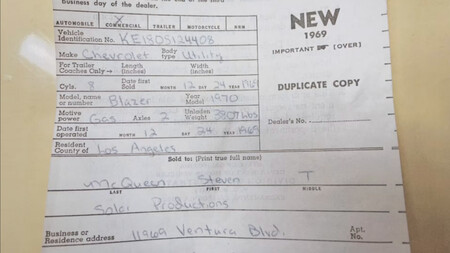 business day of the dealer.
AUTOMOBILE X COMMERCIAL TRAILER MOTORCYCLE NEW
1969
IMPORTANT (OVER)
Vehicle Identification No. KE180S124408
Make Chevrolet Body type Utility
For Trailer Coaches Only Length (inches) Width (inches)
DUPLICATE COPY
Cyls. 8 Date first Sold MONTH 12 DAY 24 YEAR 1969
Model, name or number Blazer Year Model 1970
Motive power Gas Axles 2 Unladen Weight 3807 lbs
Dealer's No.
Date first operated MONTH 12 DAY 24 YEAR 1969
Resident County of Los Angeles
Sold to: (Print true full name)
McQueen Steven T
LAST FIRST MIDDLE
Solar Productions
Business or Residence address 11969 Ventura Blvd. Apt. No.